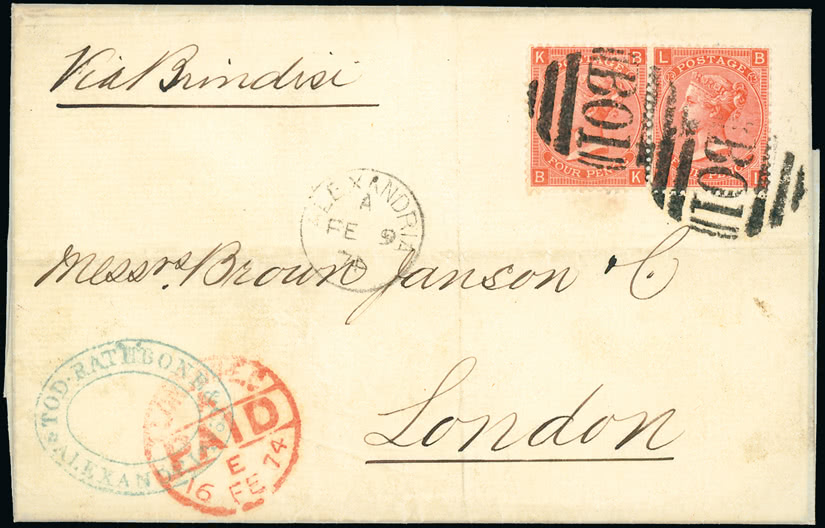 Via Brindisi
K B
POSTAGE
FOUR PENCE
B K
L B
POSTAGE
B L
B01
B01
ALEXANDRIA
A
FE 9
74
Messrs. Brown Janson & C
London
TOD·RATHBONE &
ALEXANDRIA
LONDON
PAID
E
16 FE 74